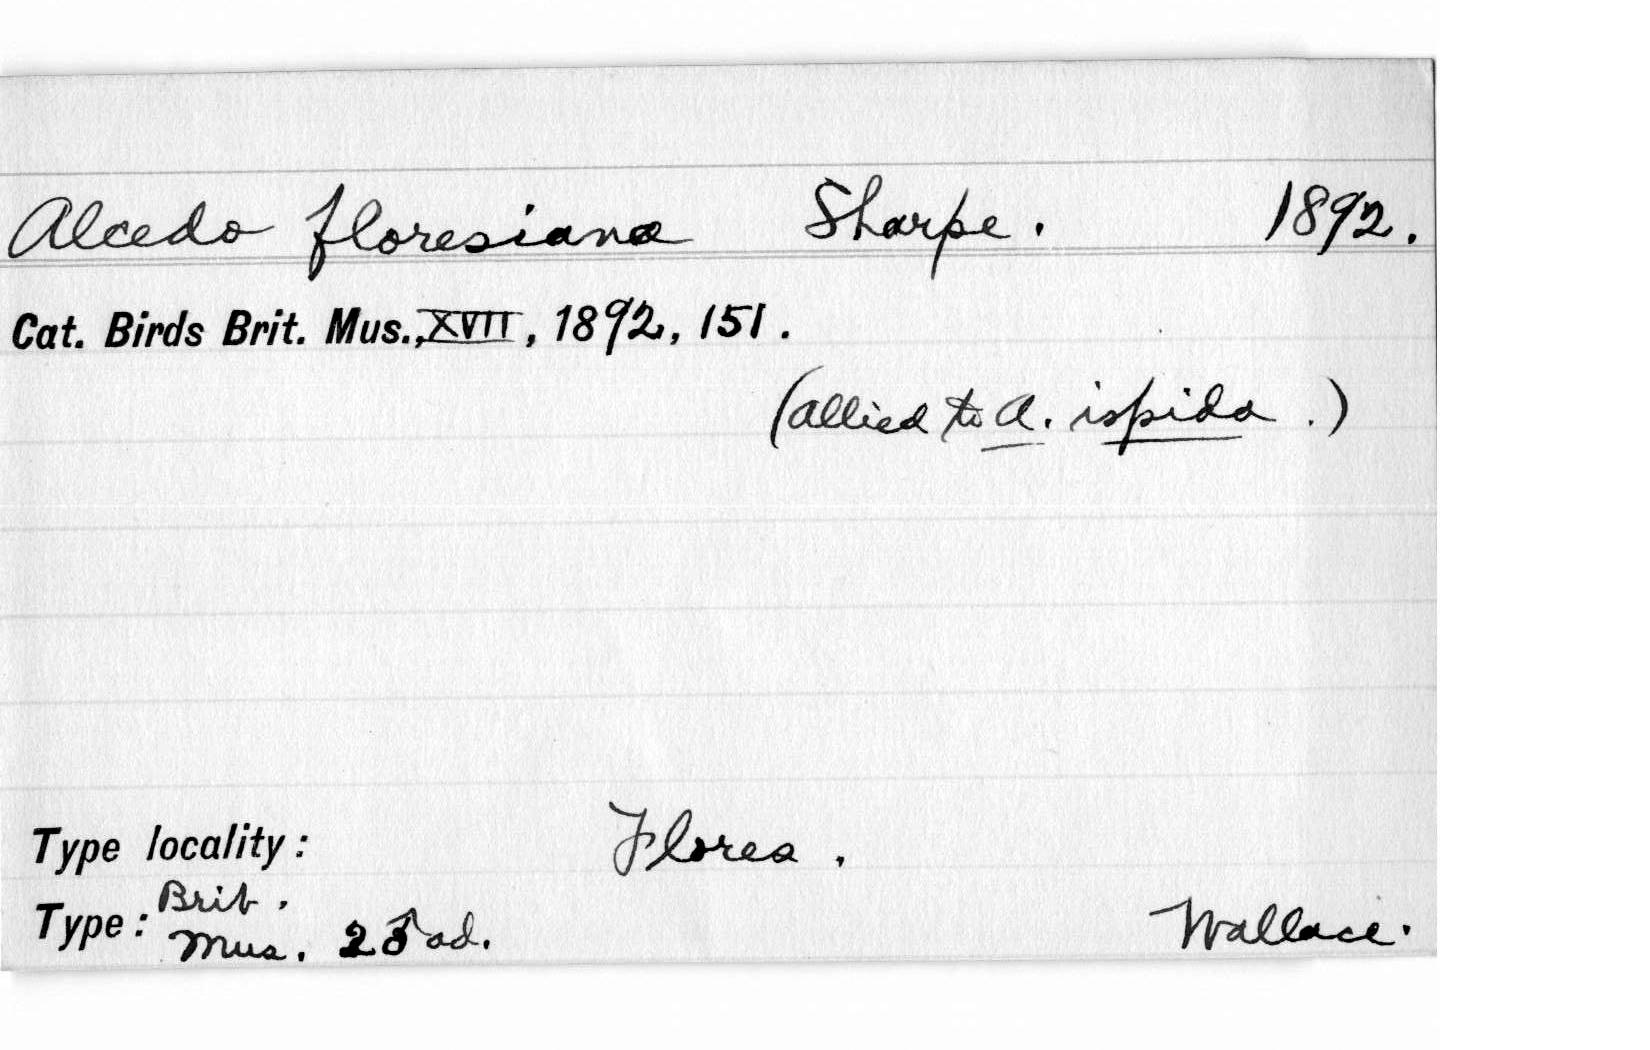 Alcedo floresiana Sharpe. 1892.
Cat. Birds Brit. Mus., XVII, 1892, 151.
(allied to A. ispida.)
Type locality: Flores.
Type: Brit. Mus. 2♂ad. Wallace.